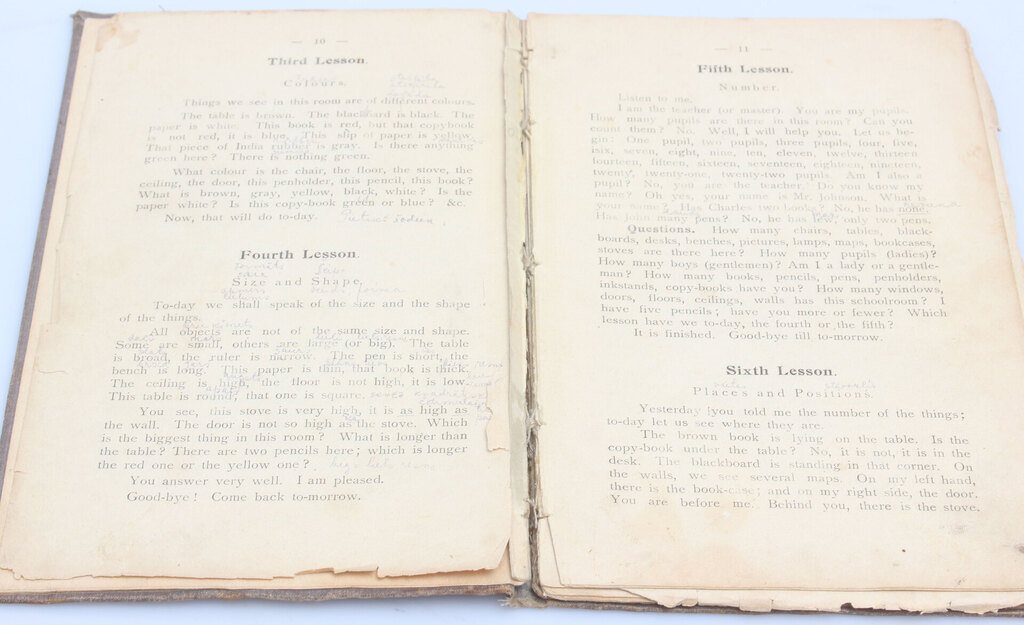 — 10 —
Third Lesson.
Colours.
Things we see in this room are of different colours.
The table is brown. The blackboard is black. The
paper is white. This book is red, but that copybook
is not red, it is blue. This slip of paper is yellow.
That piece of India rubber is gray. Is there anything
green here? There is nothing green.
What colour is the chair, the floor, the stove, the
ceiling, the door, this penholder, this pencil, this book?
What is brown, gray, yellow, black, white? Is the
paper white? Is this copy-book green or blue? &c.
Now, that will do to-day.
Fourth Lesson.
Size and Shape.
To-day we shall speak of the size and the shape
of the things.
All objects are not of the same size and shape.
Some are small, others are large (or big). The table
is broad, the ruler is narrow. The pen is short, the
bench is long. This paper is thin, that book is thick.
The ceiling is high, the floor is not high, it is low.
This table is round, that one is square.
You see, this stove is very high, it is as high as
the wall. The door is not so high as the stove. Which
is the biggest thing in this room? What is longer than
the table? There are two pencils here; which is longer
the red one or the yellow one?
You answer very well. I am pleased.
Good-bye! Come back to-morrow.
— 11 —
Fifth Lesson.
Number.
Listen to me.
I am the teacher (or master). You are my pupils.
How many pupils are there in this room? Can you
count them? No. Well, I will help you. Let us be-
gin: One pupil, two pupils, three pupils, four, five,
six, seven, eight, nine, ten, eleven, twelve, thirteen
fourteen, fifteen, sixteen, seventeen, eighteen, nineteen,
twenty, twenty-one, twenty-two pupils. Am I also a
pupil? No, you are the teacher. Do you know my
name? Oh yes, your name is Mr. Johnson. What is
your name? Has Charles two books? No, he has none.
Has John many pens? No, he has few, only two pens.
Questions. How many chairs, tables, black-
boards, desks, benches, pictures, lamps, maps, bookcases,
stoves are there here? How many pupils (ladies)?
How many boys (gentlemen)? Am I a lady or a gentle-
man? How many books, pencils, pens, penholders,
inkstands, copy-books have you? How many windows,
doors, floors, ceilings, walls has this schoolroom? I
have five pencils; have you more or fewer? Which
lesson have we to-day, the fourth or the fifth?
It is finished. Good-bye till to-morrow.
Sixth Lesson.
Places and Positions.
Yesterday you told me the number of the things;
to-day let us see where they are.
The brown book is lying on the table. Is the
copy-book under the table? No, it is not, it is in the
desk. The blackboard is standing in that corner. On
the walls, we see several maps. On my left hand,
there is the book-case; and on my right side, the door.
You are before me. Behind you, there is the stove.